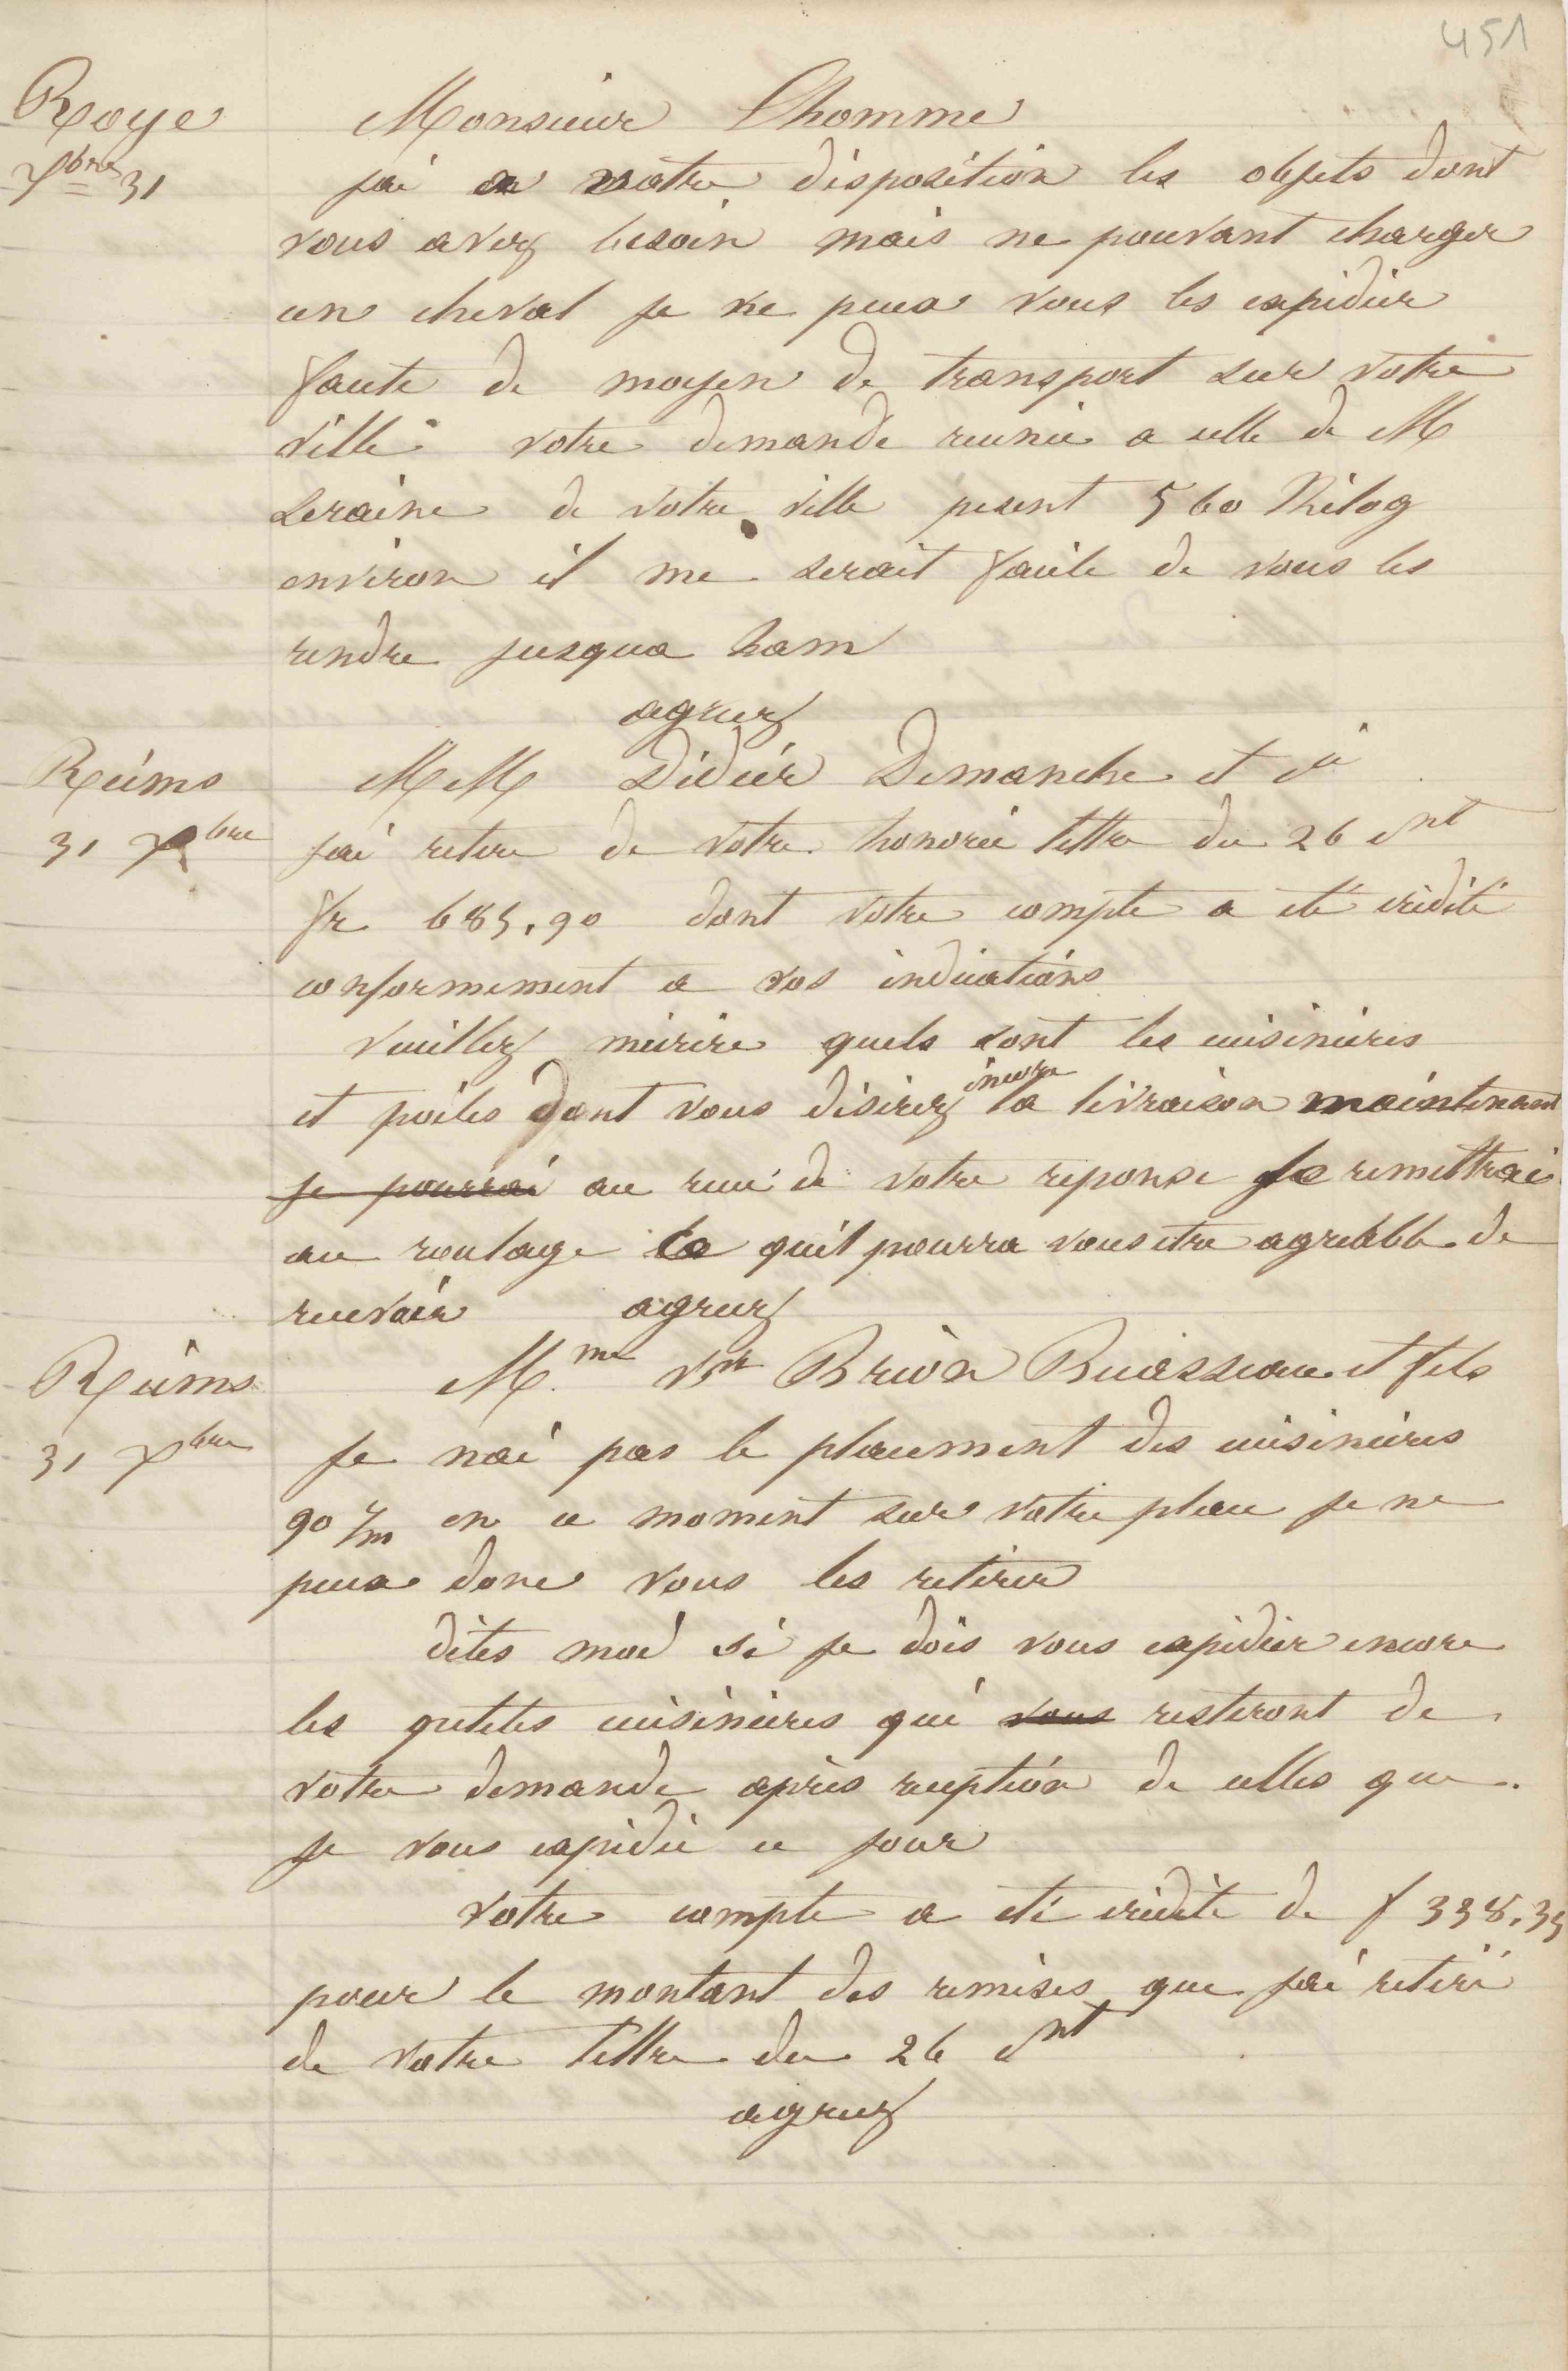 451
Roye
Xbre 31
Monsieur Lhomme
jai a votre disposition les objets dont
vous avez besoin mais ne pouvant charger
un cheval je ne peux vous les expedier
faute de moyen de transport sur votre
ville votre demande reunie a celle de M
Leraine de votre ville pesent 560 Kilog
environ il me serait facile de vous les
rendre jusqua ham
agreez
Reims
31 Xbre
MM Didier Demanche et Cie
jai retire de votre honorée lettre du 26 ct
fr 685,90 dont votre compte a été crédité
conformement a vos indications
veuillez mécrire quels sont les cuisinieres
et poiles dont vous désirez encore la livraison maintenant
je pourrai au recu de votre reponse je remettrai
au roulage ce quil pourra vous etre agreable de
recevoir agreez
Reims
31 Xbre
Mme Vve Brion Buasseau et fils
Je nai pas le placement des cuisinieres
90 c/m en ce moment sur votre place je ne
peux donc vous les retirer
dites moi si je dois vous expédier encore
les petites cuisinières qui vous resteront de
votre demande après reception de celles que
je vous expedie ce jour
votre compte a été crédité de f 338,35
pour le montant des remises que jai retiré
de votre lettre du 26 ct
agreez